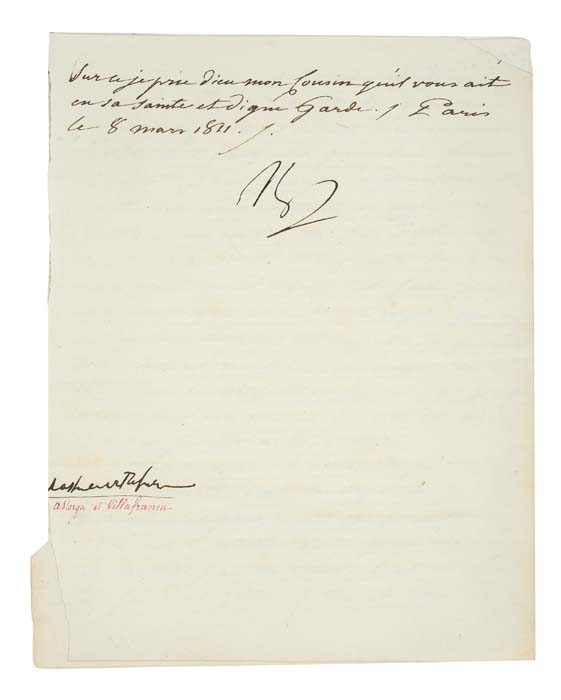 Sur ce je prie dieu mon Cousin qu'il vous ait
en sa sainte et digne Garde. / Paris
le 8 mars 1811. /.
astorga et Villafranca